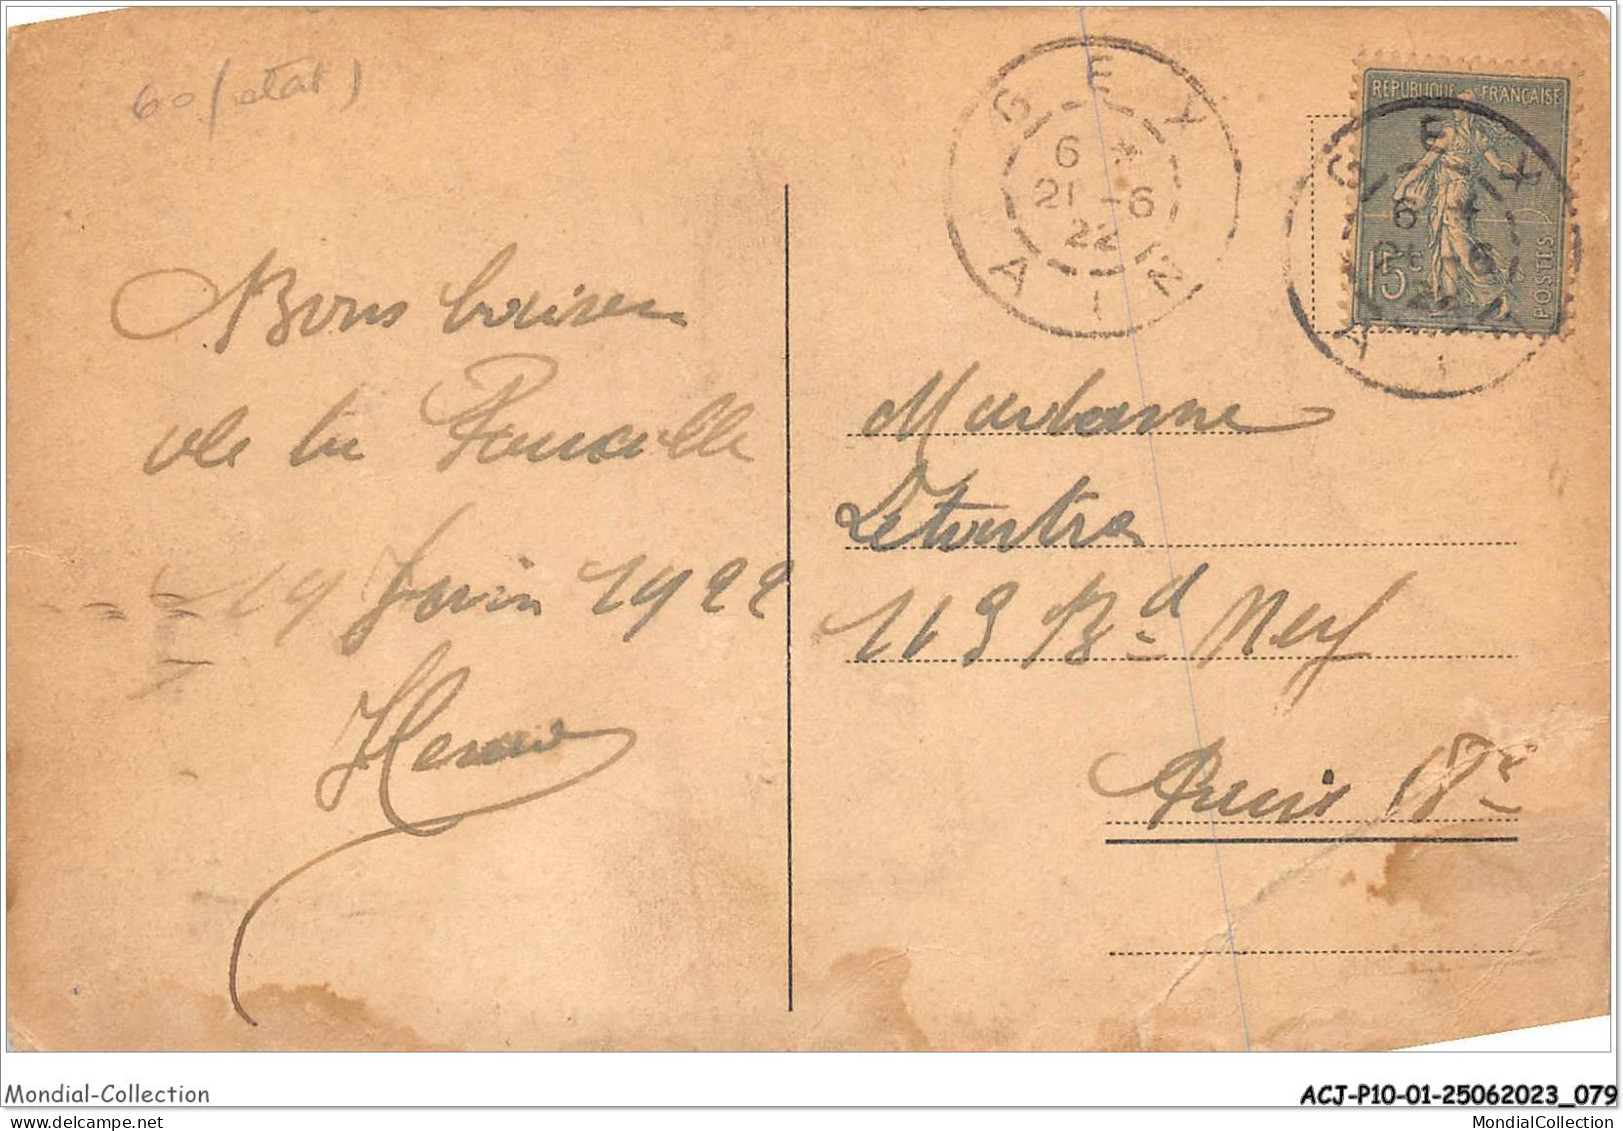 60 (état)
GEX
6 *
21 -6
22
AIN
REPUBLIQUE FRANÇAISE
15c
POSTES
GEX
6 *
21 -6
22
AIN
Bons baisers
de la Faucille
19 Juin 1922
Madame
Letertre
113 Bd Ney
Paris
Mondial-Collection
ACJ-P10-01-25062023_079
MondialCollection